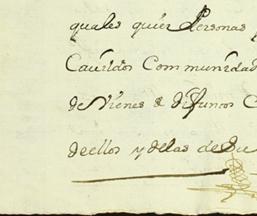 quales quier Personas
Cavildos Communidad
de Vienes de difuncos C
de ellos y de las de Su